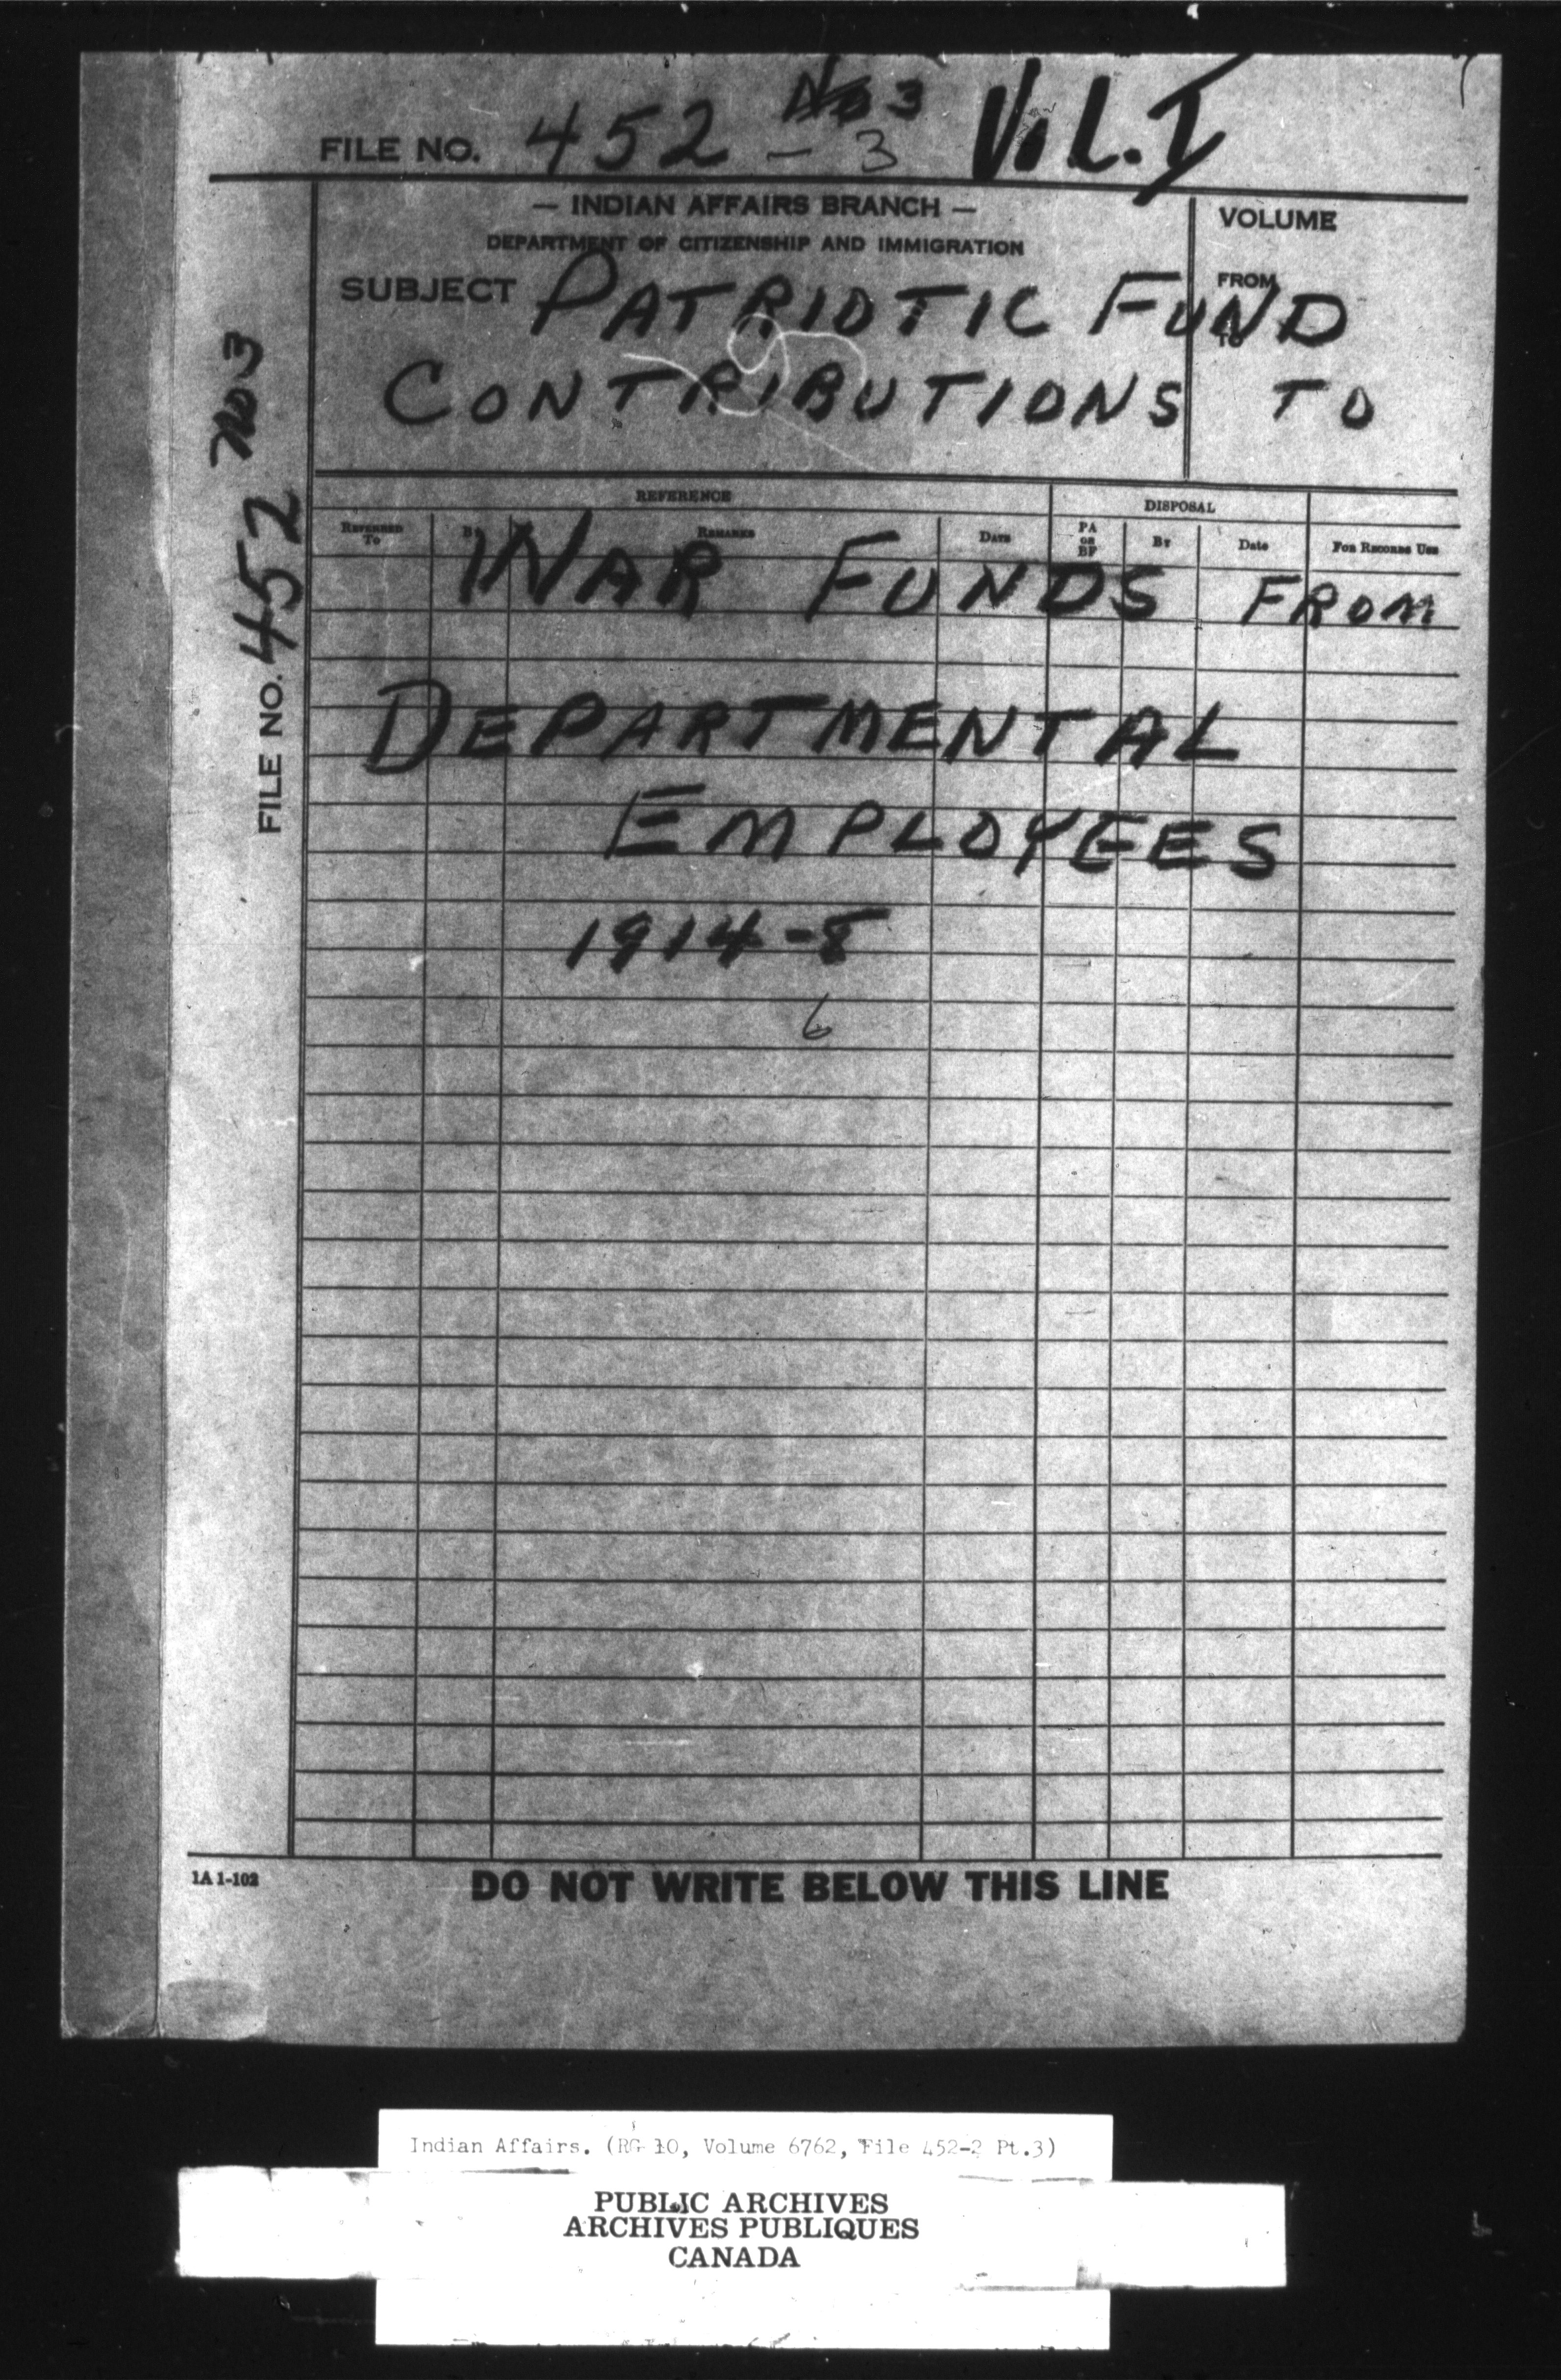 FILE NO. 452 - 3 No 3 Vol. I
— INDIAN AFFAIRS BRANCH —
DEPARTMENT OF CITIZENSHIP AND IMMIGRATION
VOLUME
FROM
TO
SUBJECT PATRIOTIC FUND
CONTRIBUTIONS TO
REFERENCE
DISPOSAL
REFERRED TO
BY
REMARKS
DATE
PA OR BF
BY
Date
FOR RECORDS USE
WAR FUNDS FROM
DEPARTMENTAL
EMPLOYEES
1914-8
6
FILE NO. 452 No 3
1A 1-102
DO NOT WRITE BELOW THIS LINE
Indian Affairs. (RG 10, Volume 6762, File 452-2 Pt.3)
PUBLIC ARCHIVES
ARCHIVES PUBLIQUES
CANADA